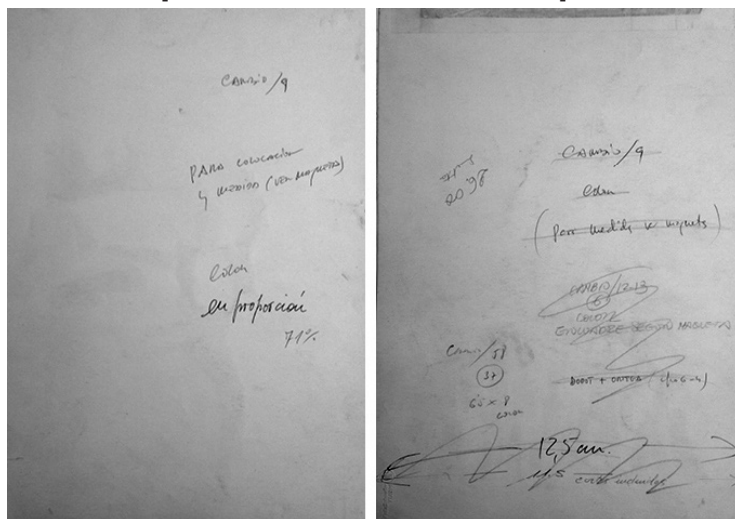 CAMBIO/9
PARA COLOCACIÓN
y MEDIDAS (VER MAQUETA)
Color
en proporción
71%
20'98
CAMBIO/9
Color
(Para medida ver maqueta)
CAMBIO/12-13
COLOR
ENCUADRE SEGÚN MAQUETA
Cambio/58
37
65 x 8
COLOR
12,5 cm.
11,5